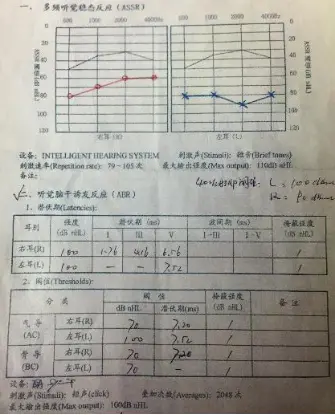 一、多频听觉稳态反应(ASSR)
500 1000 2000 4000Hz 500 1000 2000 4000Hz
右耳(R) 左耳(L)
设备：INTELLIGENT HEARING SYSTEM 刺激声(Stimuli)：短音(Brief tones)
刺激速率(Repetition rate)：79～105次 最大输出强度(Max output)：110dB nHL
备注：
二、听觉脑干诱发反应(ABR)
1. 潜伏期(Latencies):
耳别 强度 潜伏期 (ms) 波间期 (ms) 掩蔽强度
(dB nHL) I III V I-III I-V (dB nHL)
右耳(R) 100 1.76 4.16 6.56 /
左耳(L) 100 — — 7.52 /
2. 阈值(Thresholds):
分类 阈值 掩蔽强度 备注
dB nHL 潜伏期(ms) (dB nHL)
气导 右耳(R) 70 7.20 /
(AC) 左耳(L) 100 7.52 /
骨导 右耳(R) 70 7.20 /
(BC) 左耳(L) 70 / /
设备：
刺激声(Stimuli)：短声(click) 叠加次数(Averages)：2048 次
最大输出强度(Max output)：100dB nHL